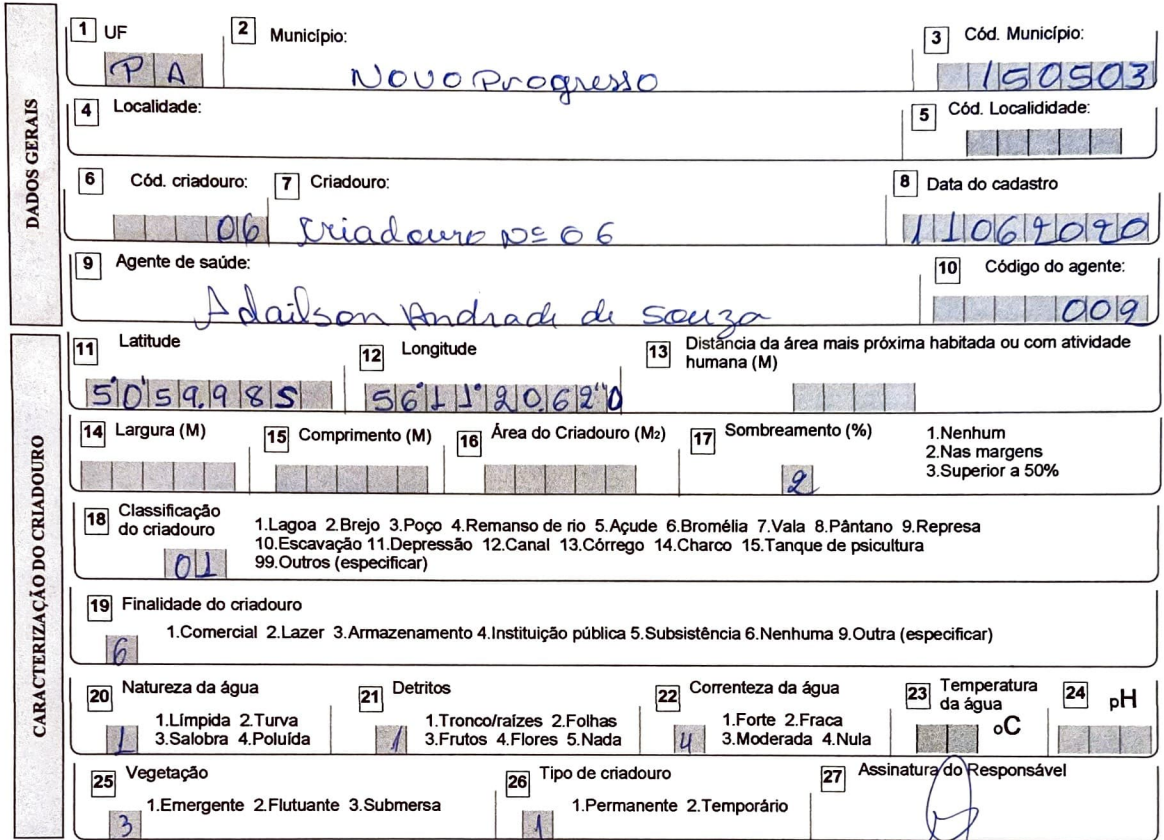 DADOS GERAIS
1 UF
PA
2 Município:
Novo Progresso
3 Cód. Município:
150503
4 Localidade:
5 Cód. Localididade:
6 Cód. criadouro:
06
7 Criadouro:
Criadouro Nº 06
8 Data do cadastro
11062020
9 Agente de saúde:
Adailson Andrade de Souza
10 Código do agente:
009
CARACTERIZAÇÃO DO CRIADOURO
11 Latitude
5°0'59.98S
12 Longitude
56°11'20.62"O
13 Distância da área mais próxima habitada ou com atividade
humana (M)
14 Largura (M)
15 Comprimento (M)
16 Área do Criadouro (M2)
17 Sombreamento (%)
2
1.Nenhum
2.Nas margens
3.Superior a 50%
18 Classificação
do criadouro
01
1.Lagoa 2.Brejo 3.Poço 4.Remanso de rio 5.Açude 6.Bromélia 7.Vala 8.Pântano 9.Represa
10.Escavação 11.Depressão 12.Canal 13.Córrego 14.Charco 15.Tanque de psicultura
99.Outros (especificar)
19 Finalidade do criadouro
6
1.Comercial 2.Lazer 3.Armazenamento 4.Instituição pública 5.Subsistência 6.Nenhuma 9.Outra (especificar)
20 Natureza da água
1
1.Límpida 2.Turva
3.Salobra 4.Poluída
21 Detritos
1
1.Tronco/raízes 2.Folhas
3.Frutos 4.Flores 5.Nada
22 Correnteza da água
4
1.Forte 2.Fraca
3.Moderada 4.Nula
23 Temperatura
da água
oC
24 pH
25 Vegetação
3
1.Emergente 2.Flutuante 3.Submersa
26 Tipo de criadouro
1
1.Permanente 2.Temporário
27 Assinatura do Responsável